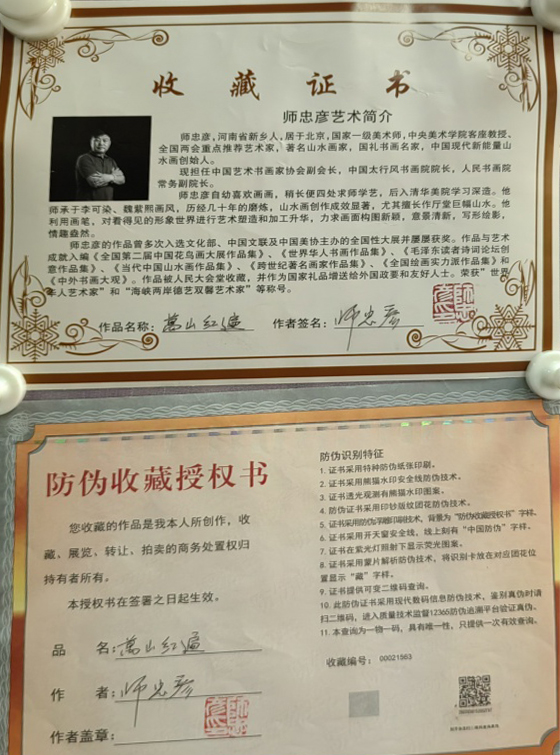 收藏证书
师忠彦艺术简介
师忠彦，河南省新乡人，居于北京，国家一级美术师，中央美术学院客座教授、
全国两会重点推荐艺术家，著名山水画家，国礼书画名家，中国现代新能量山
水画创始人。
现担任中国艺术书画家协会副会长，中国太行风书画院院长，人民书画院
常务副院长。
师忠彦自幼喜欢画画，稍长便四处求师学艺，后入清华美院学习深造。他
师承于李可染、魏紫熙画风，历经几十年的磨炼，山水画创作成效显著，尤其擅长作厅堂巨幅山水。他
利用画笔，对看得见的形象世界进行艺术塑造和加工升华，力求画面构图新颖，意景清新，写形绘影，
情趣盎然。
师忠彦的作品曾多次入选文化部、中国文联及中国美协主办的全国性大展并屡屡获奖。作品与艺术
成就入编《全国第二届中国花鸟画大展作品集》、《世界华人书画作品集》、《毛泽东读者诗词论坛创
意作品集》、《当代中国山水画作品集》、《跨世纪著名画家作品集》、《全国绘画实力派作品集》和
《中外书画大观》。作品被人民大会堂收藏，并作为国家礼品增送给外国政要和友好人士。荣获“世界
华人艺术家”和“海峡两岸德艺双馨艺术家”等称号。
作品名称：萬山红遍 作者签名：师忠彦
防伪收藏授权书
您收藏的作品是我本人所创作，收
藏、展览、转让、拍卖的商务处置权归
持有者所有。
本授权书在签署之日起生效。
品 名：萬山红遍
作 者：师忠彦
作者盖章：
防伪识别特征
1. 证书采用特种防伪纸张印刷。
2. 证书采用熊猫水印安全线防伪技术。
3. 证书透光观测有熊猫水印图案。
4. 防伪证书采用印钞版纹团花防伪技术。
5. 证书采用防伪浮雕印刷技术，背景为“防伪收藏授权书”字样。
6. 证书采用开天窗安全线，线上刻有“中国防伪”字样。
7. 证书在紫光灯照射下显示荧光图案。
8. 证书采用蒙片解析防伪技术，将识别卡放在对应团花位
置显示“藏”字样。
9. 证书提供可变二维码查询。
10. 此防伪证书采用现代数码信息防伪技术，鉴别真伪时请
扫二维码，进入质量技术监督12365防伪追溯平台验证真伪。
11. 本查询为一物一码，具有唯一性，只提供一次有效查询。
收藏编号：00021563